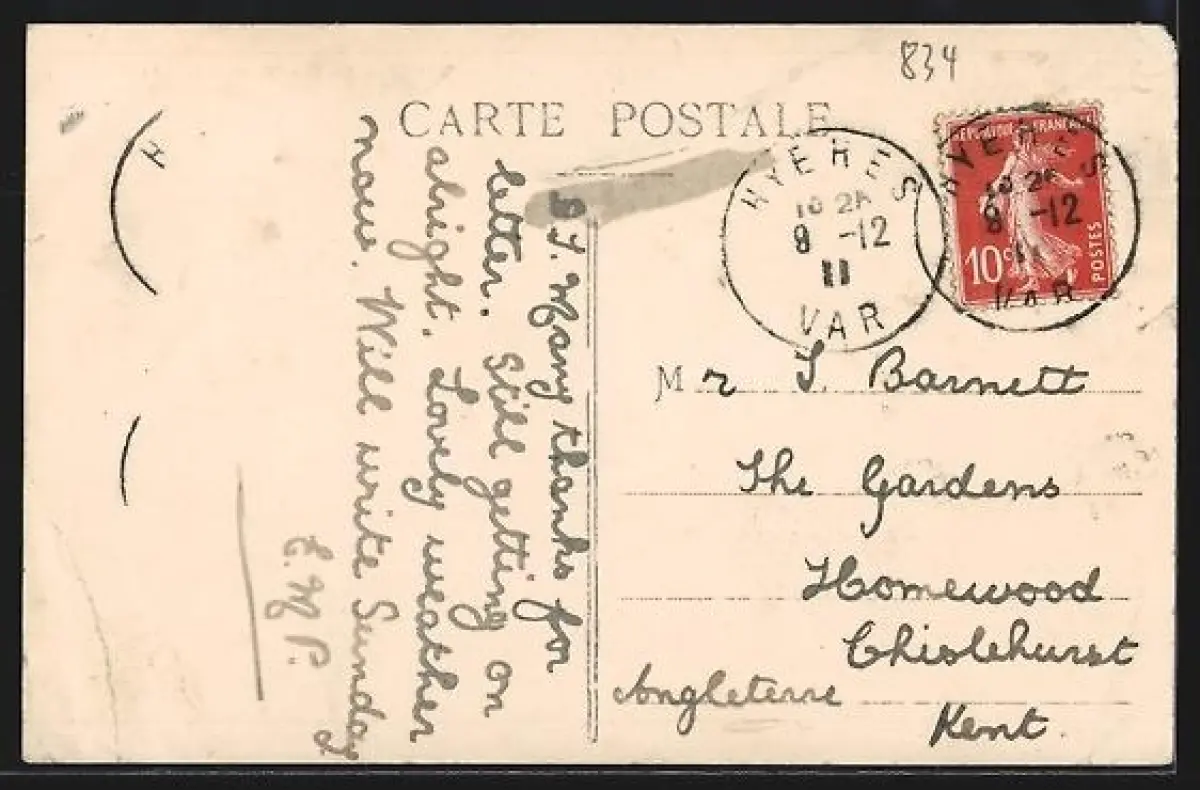 834
CARTE POSTALE
REPUBLIQUE FRANÇAISE
10c
POSTES
HYERES
8 -12
11
VAR
HYERES
8 -12
11
VAR
D. J. Many thanks for
letter. Still getting on
alright. Lovely weather
now. Will write Sunday
E.W.P.
Mr J. Barnett
The Gardens
Homewood
Chislehurst
Angleterre
Kent.
H